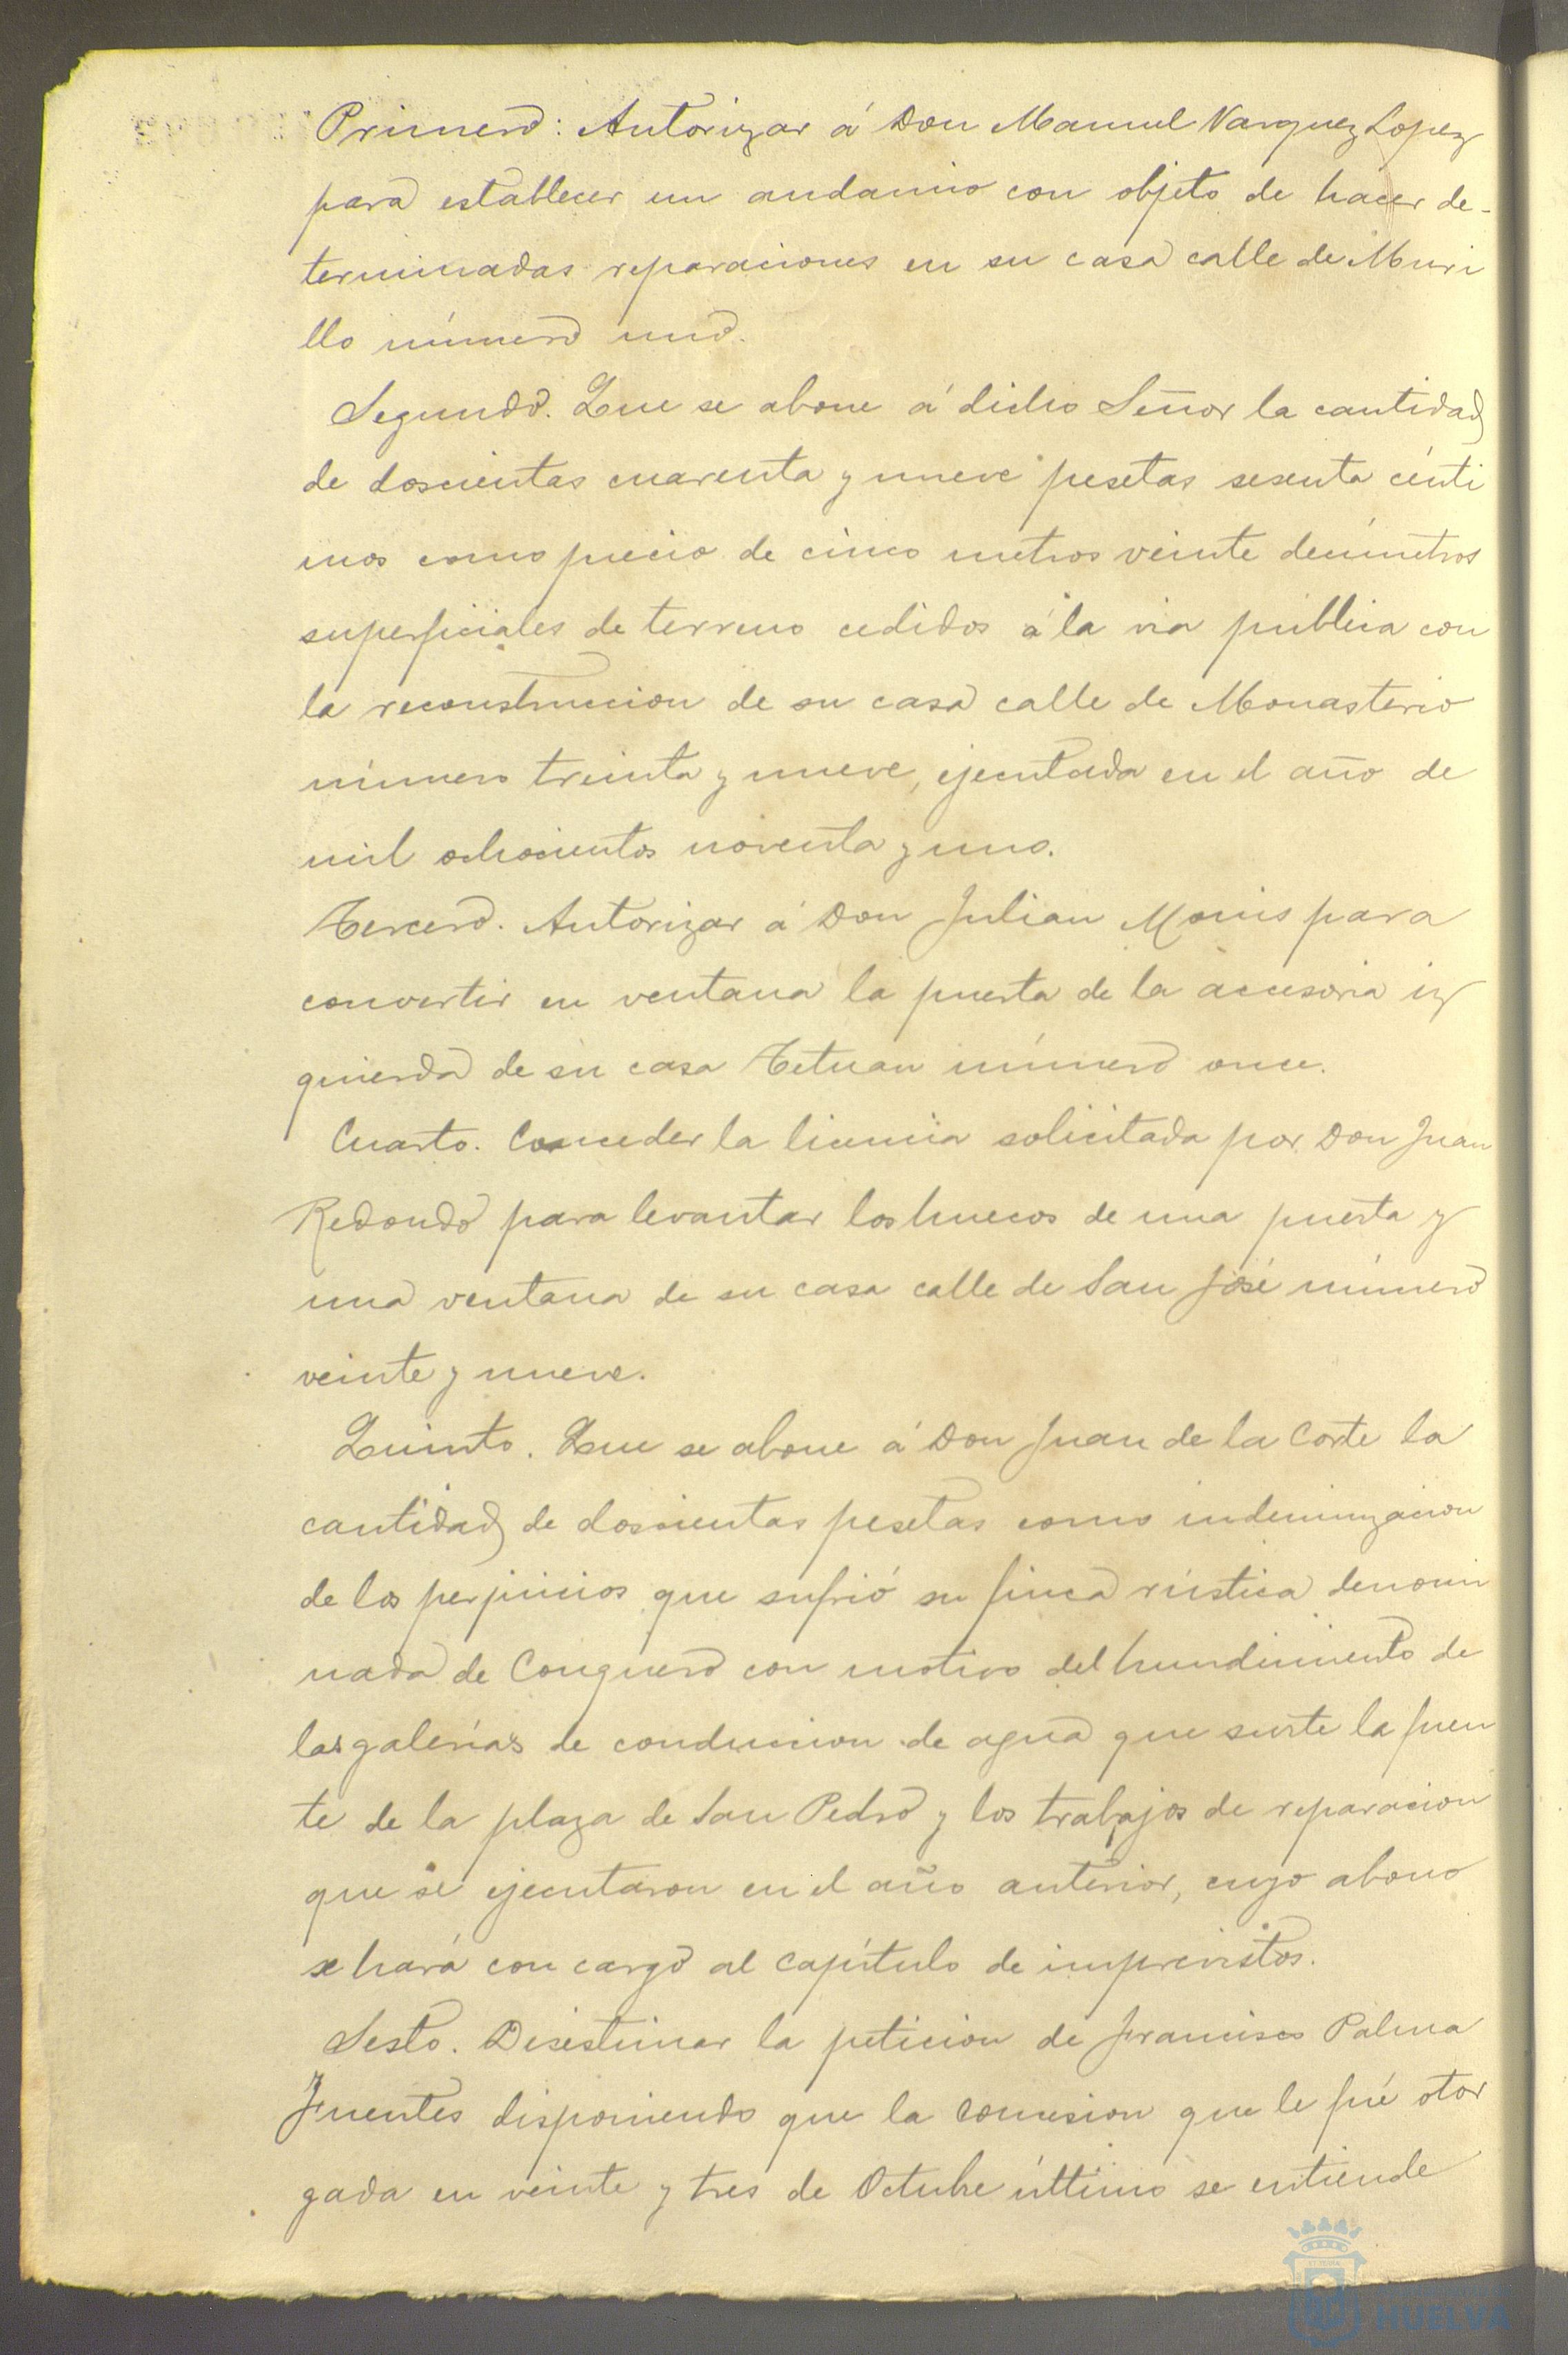 Primero: Autorizar á Don Manuel Vazquez Lopez
para establecer un andamio con objeto de hacer de-
terminadas reparaciones en su casa calle de Muri
llo número uno.
Segundo. Que se abone á dicho Señor la cantidad
de doscientas cuarenta y nueve pesetas sesenta cénti
mos como precio de cinco metros veinte decímetros
superficiales de terreno cedidos á la via pública con
la reconstruccion de su casa calle de Monasterio
número treinta y nueve, ejecutada en el año de
mil ochocientos noventa y uno.
Tercero. Autorizar á Don Julian Monis para
convertir en ventana la puerta de la accesoria iz
quierda de su casa Tetuan número once.
Cuarto. Conceder la licencia solicitada por Don Juan
Redondo para levantar los huecos de una puerta y
una ventana de su casa calle de San José número
veinte y nueve.
Quinto. Que se abone á Don Juan de la Corte la
cantidad de doscientas pesetas como indemnizacion
de los perjuicios que sufrió su finca rústica denomi
nada de Conquero con motivo del hundimiento de
las galerías de conduccion de agua que surte la fuen
te de la plaza de San Pedro y los trabajos de reparacion
que se ejecutaron en el año anterior, cuyo abono
se hará con cargo al capítulo de imprevistos.
Sesto. Desestimar la peticion de Francisco Palma
Fuentes disponiendo que la concesion que le fué otor
gada en veinte y tres de Octubre último se entiende
HUELVA